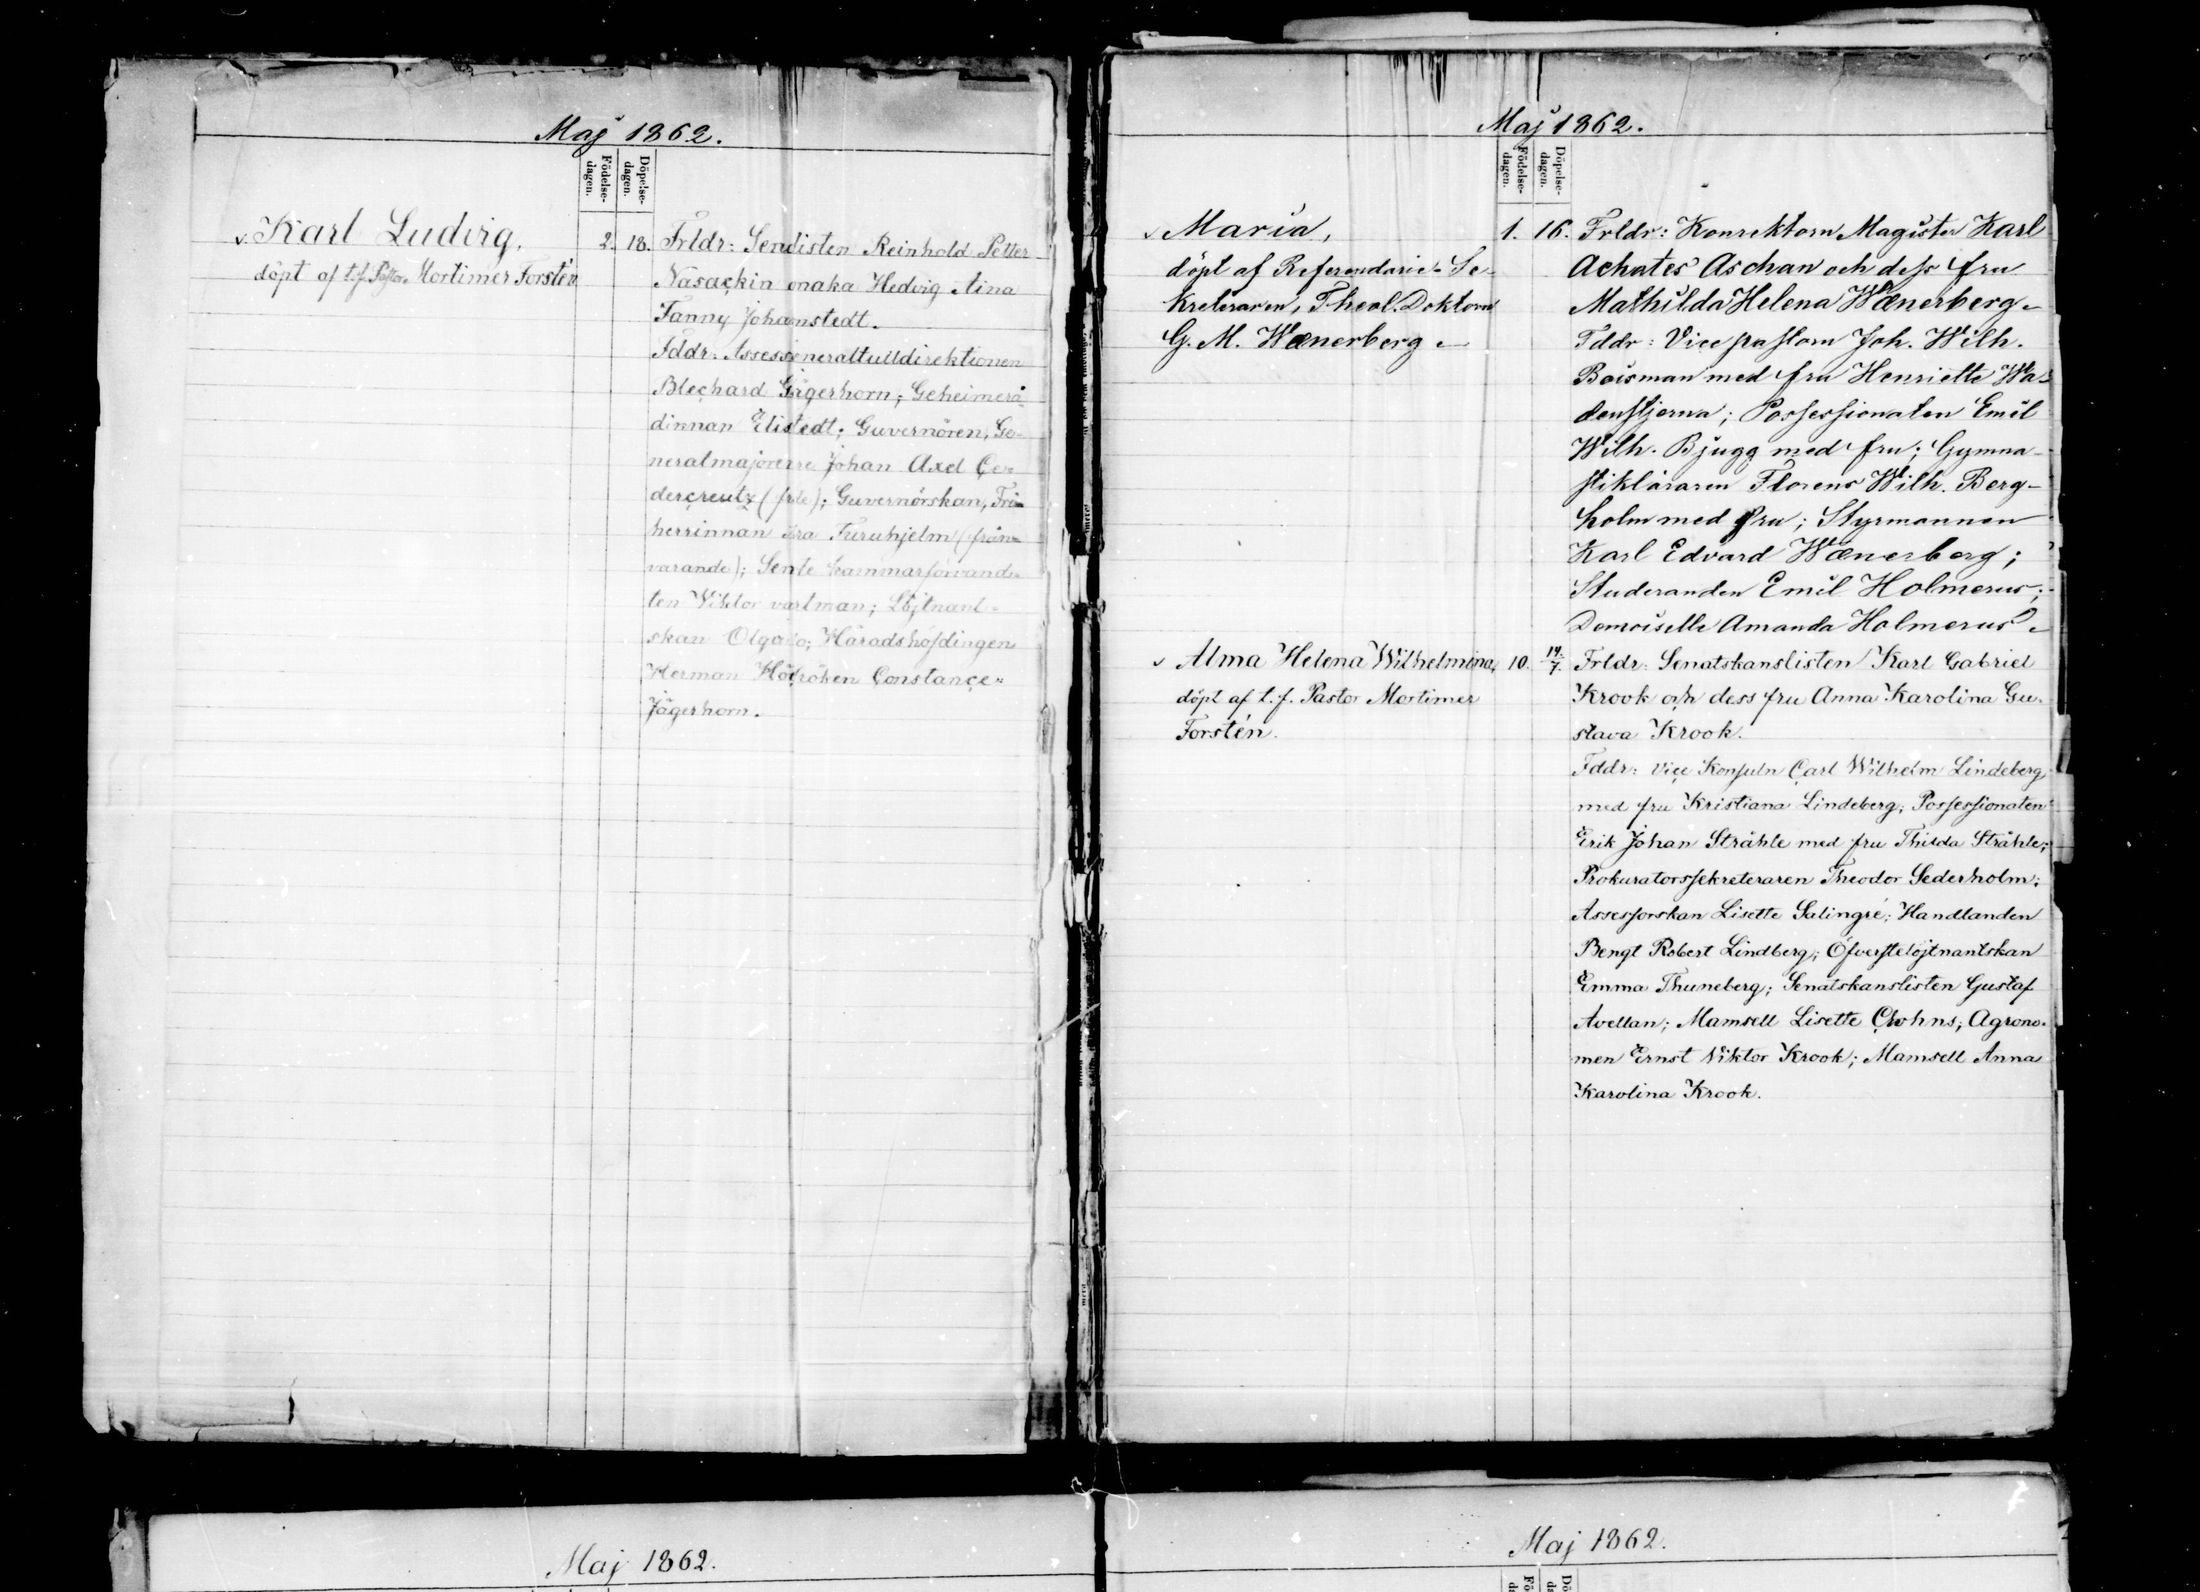 Maj 1862.
Födelse-
dagen.
Döpelse-
dagen.
v. Karl Ludvig,
döpt af t.f. Pastor Mortimer Forstén
2. 18. Frldr: Reinhold Petter
Nasackin Hedvig Aina
Fanny Johanstedt.
Fddr:
Jägerhorn; Geheimerå-
dinnan Guvernören, Ge-
neralmajoren Johan Axel Ce-
dercreutz Guvernörskan, Fri-
herrinnan Furuhjelm (från-
varande);
ten Viktor Löjtnant-
skan Olga Häradshöfdingen
Herman Constance
Jägerhorn.
Maj 1862.
Födelse-
dagen.
Döpelse-
dagen.
v Maria,
döpt af Referendarie-Se-
kreteraren, Theol. Doktorn
G. M. Wænerberg.
1. 16. Frldr: Konrektorn Magister Karl
Achates Aschan och dess fru
Mathilda Helena Wænerberg.
Fddr: Vicepastorn Joh. Wilh.
Boisman med fru Henriette Wa-
denstjerna; Possessionaten Emil
Wilh. Bjugg med fru; Gymna-
stikläraren Florens Wilh. Berg-
holm med fru; Styrmannen
Karl Edvard Wænerberg;
Studeranden Emil Holmerus;
Demoiselle Amanda Holmerus.
v Alma Helena Wilhelmina,
döpt af t.f. Pastor Mortimer
Forstén.
10. 14/7. Frldr: Senatskanslisten Karl Gabriel
Krook och dess fru Anna Karolina Gu-
stava Krook.
Fddr: Vice Konsuln Carl Wilhelm Lindeberg
med fru Kristiana Lindeberg; Possessionaten
Erik Johan Stråhle med fru Thilda Stråhle;
Prokuratorssekreteraren Theodor Sederholm;
Assessorskan Lisette Salingré; Handlanden
Bengt Robert Lindberg; Öfverstelöjtnantskan
Emma Thuneberg; Senatskanslisten Gustaf
Avellan; Mamsell Lisette Crohns; Agrono-
men Ernst Viktor Krook; Mamsell Anna
Karolina Krook.
Maj 1862.
Maj 1862.